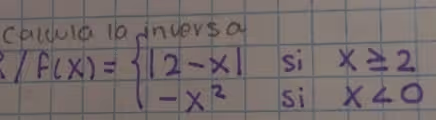 calcula la inversa
/ f(x) = { |2-x| si x ≥ 2
-x² si x < 0